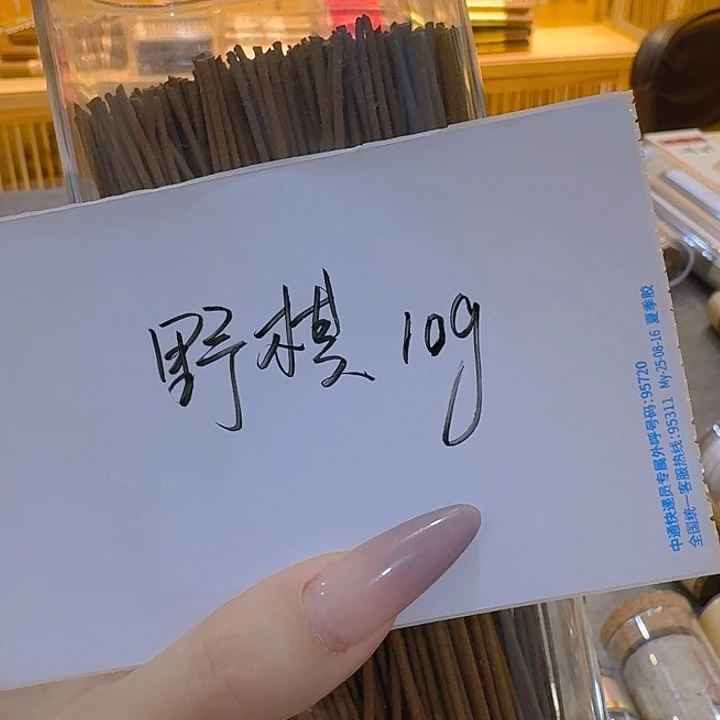 野棋 10g
中通快递员专属外呼号码:95720
全国统一客服热线:95311 My-25-08-16 夏季胶